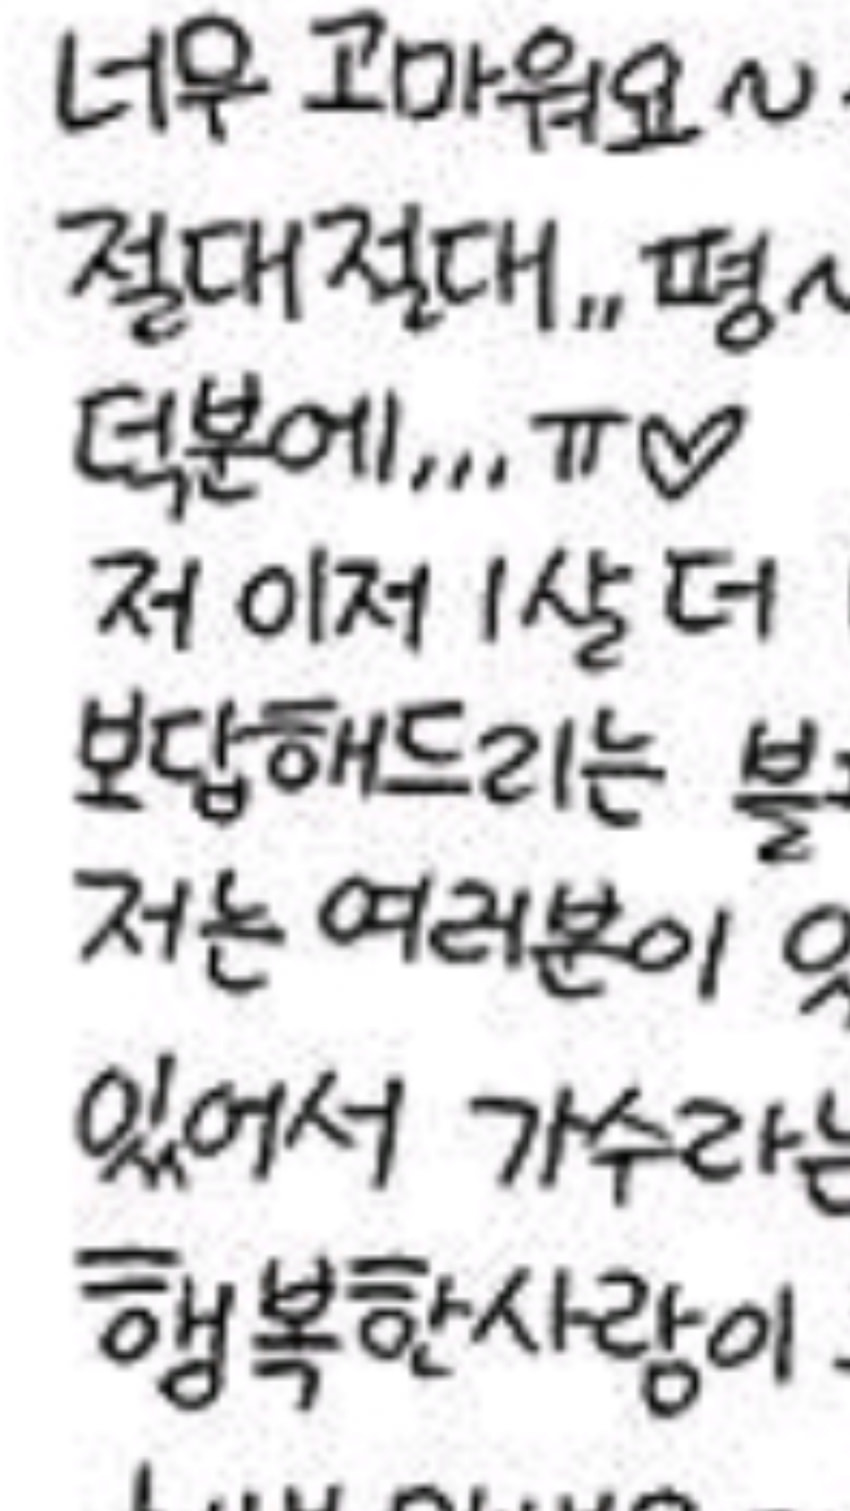 너무 고마워요~
절대절대,, 평~
덕분에,,, ㅠ♡
저 이저 1살 더
보답해드리는
저는 여러분이
있어서
행복한사랑이